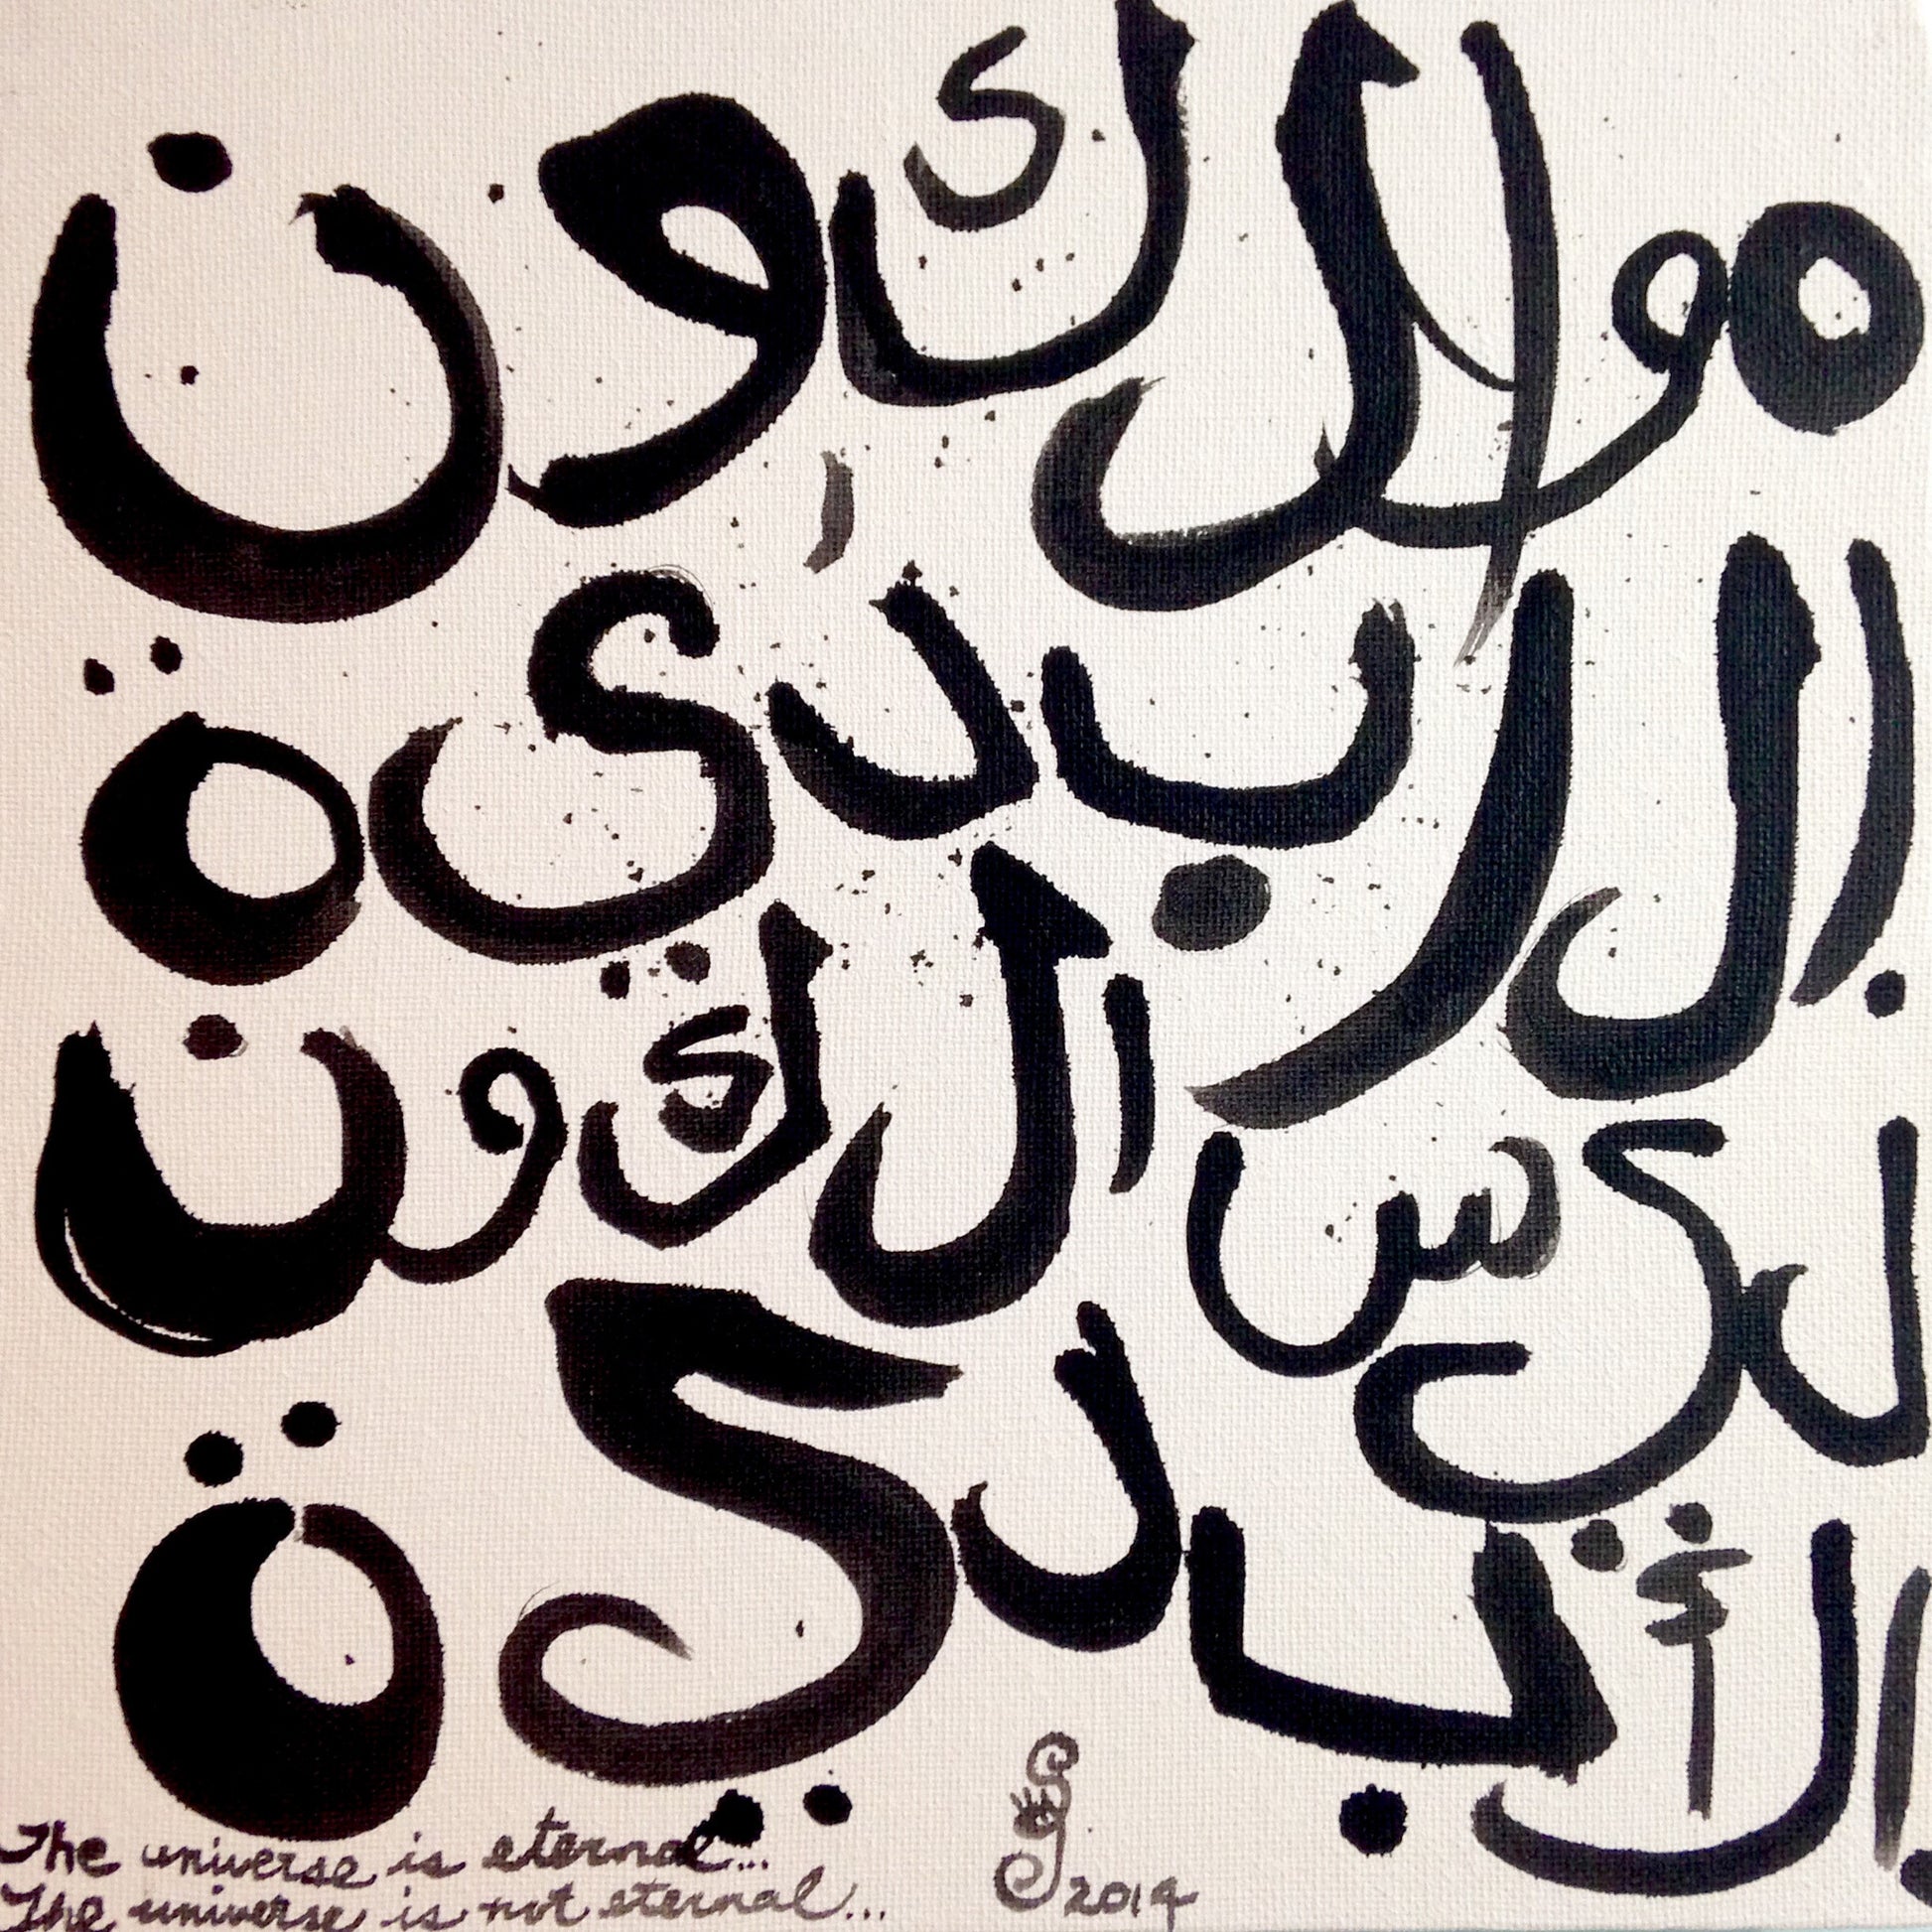 هو الكون
الابدية
ليس الكون
الأبدية
The universe is eternal...
The universe is not eternal...
2014